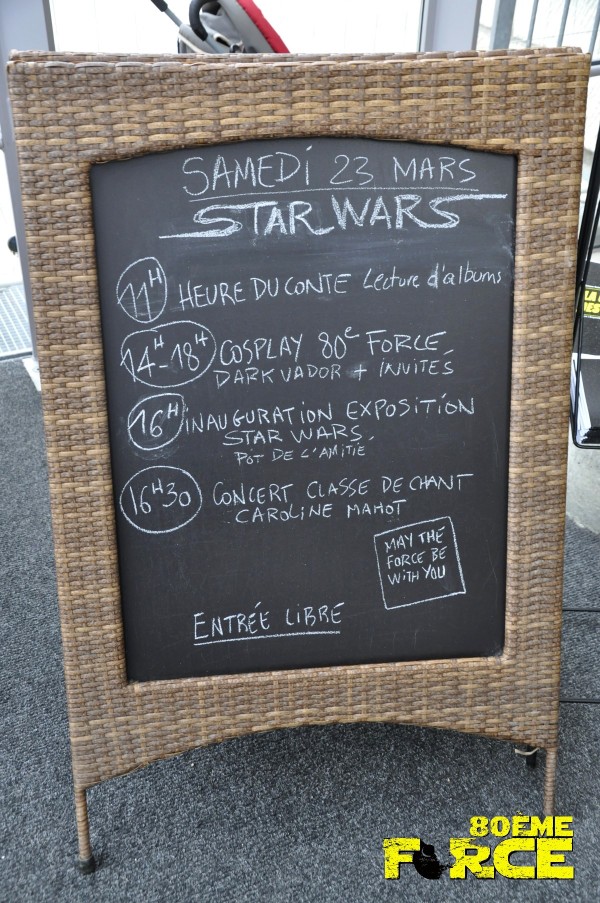 SAMEDI 23 MARS
STAR WARS
11H HEURE DU CONTE Lecture d'albums
14H-18H COSPLAY 80e FORCE
DARK VADOR + INVITÉS
16H INAUGURATION EXPOSITION
STAR WARS.
POT DE L'AMITIÉ
16H30 CONCERT CLASSE DE CHANT
CAROLINE MAHOT
MAY THE
FORCE BE
WITH YOU
ENTRÉE LIBRE
80ÈME
FORCE